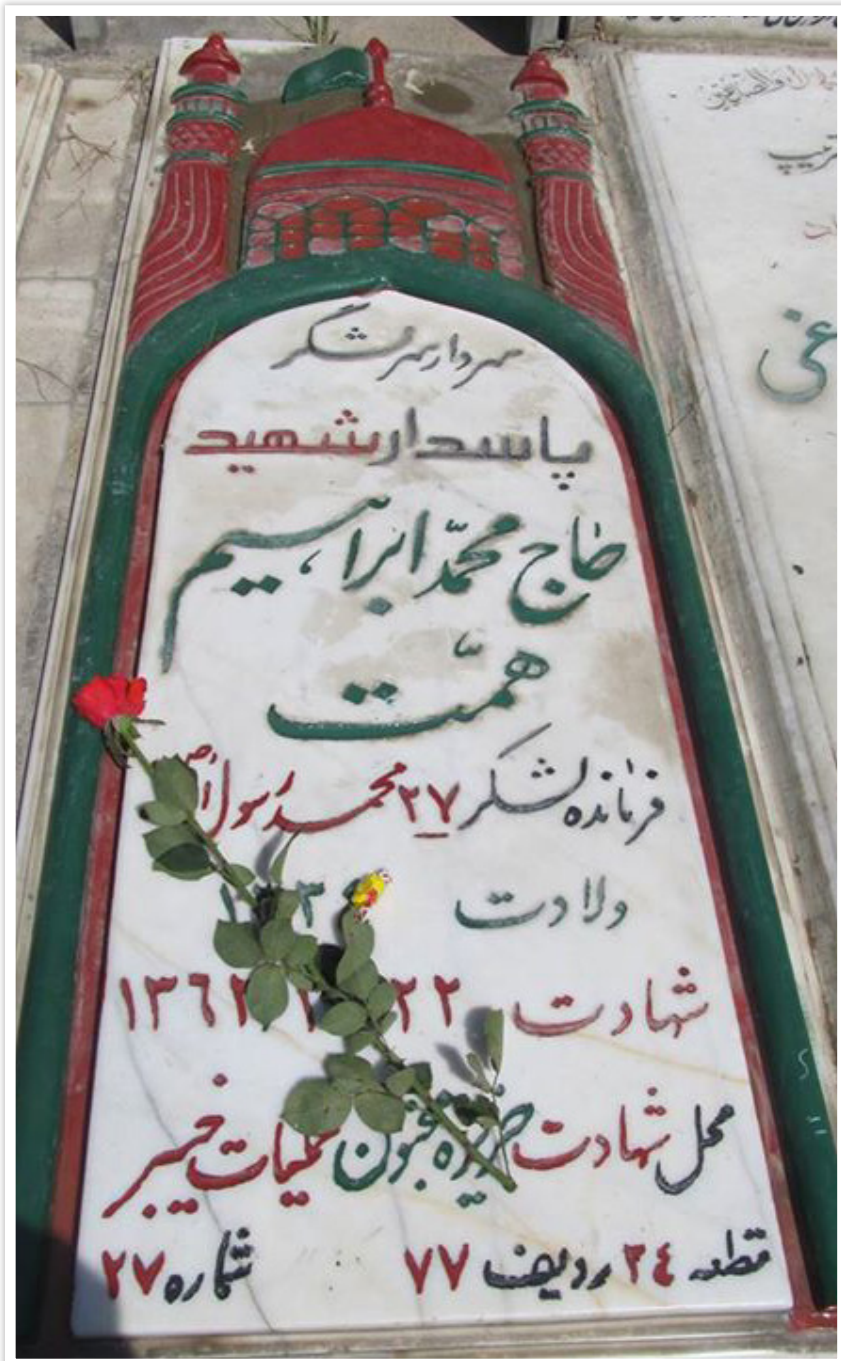 سردار سرلشگر
پاسدار شهید
حاج محمّد ابراهیم
همّت
فرمانده لشکر ۲۷ محمد رسول
ولادت
شهادت ۲۲ ۱۳٦۲
محل شهادت جزیره مجنون عملیات خیبر
قطعه ۲٤ ردیف ۷۷ شماره ۲۷